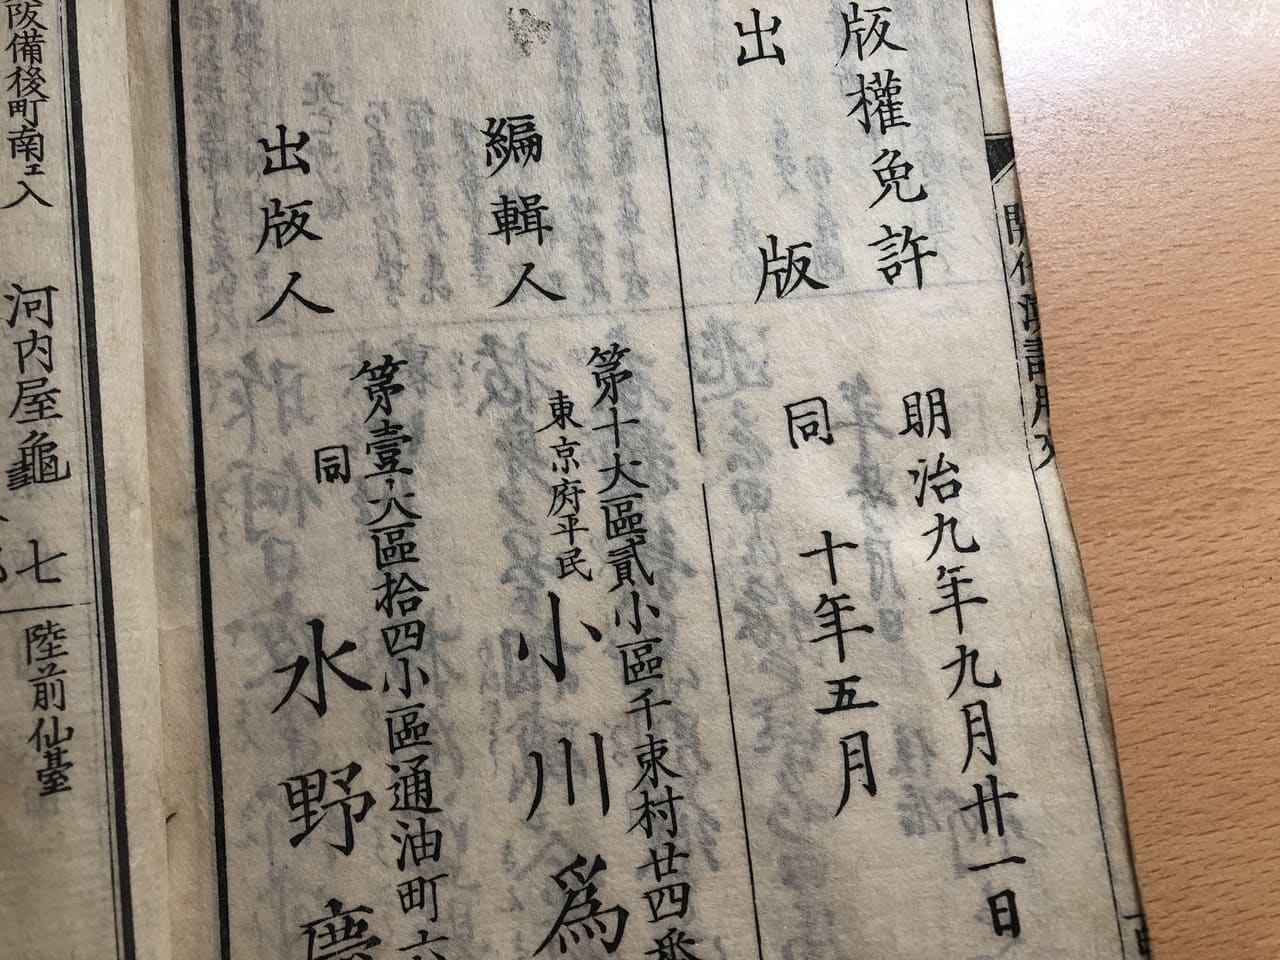 版權免許
明治九年九月廿一日
出版
同十年五月
編輯人
第十大區貳小區千束村廿四番
東京府平民
小川為
出版人
第壹大區拾四小區通油町六
同
水野慶
阪備後町南エ入
河内屋龜七
陸前仙臺